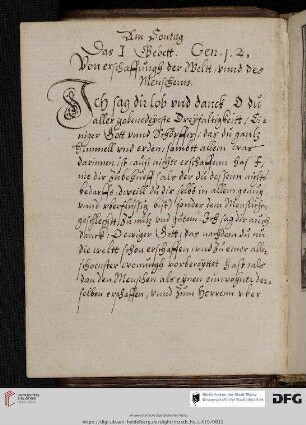 Am Sontag
Das I Gebett. Gen. 1. 2.
Von erschaffungh der Weltt, vnnd des
Menschenn.
Ich sag dir lob vnd danck O du
aller gebenedeyste Dreyfaltigkeitt, Ei-
niger Gott vnnd Schöpffer, das du gantz
himmell vnd erden, sambtt allem was
darinnen ist, auß nichts erschaffenn has t,
nit dir zubehueff (als der du des seinn nitt
bedarffs, dweill du dir selbs in allem genug
vnnd vberflüssig bist) sonder dem Menslichn
geschlechtt zu nutz vnd gutem. Ich sag dir auch
danck, O ewiger Gott, das nachdem du nu
die weltt schon erschaffen, vnnd zu einer aller
schoenster wonungh vorbereyttet hast, als
dan den Menschen als eynen einwohner der-
selben erschaffen, vnnd zum Herrenn vber
Wissenschaftliche Stadtbibliothek
DFG